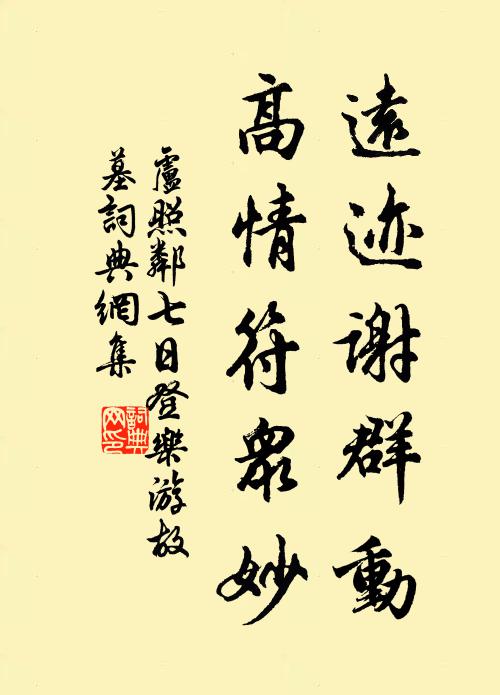 遠迹謝群動
高情符衆妙
盧照鄰七日登樂游故
墓詞典網集
詞典网印